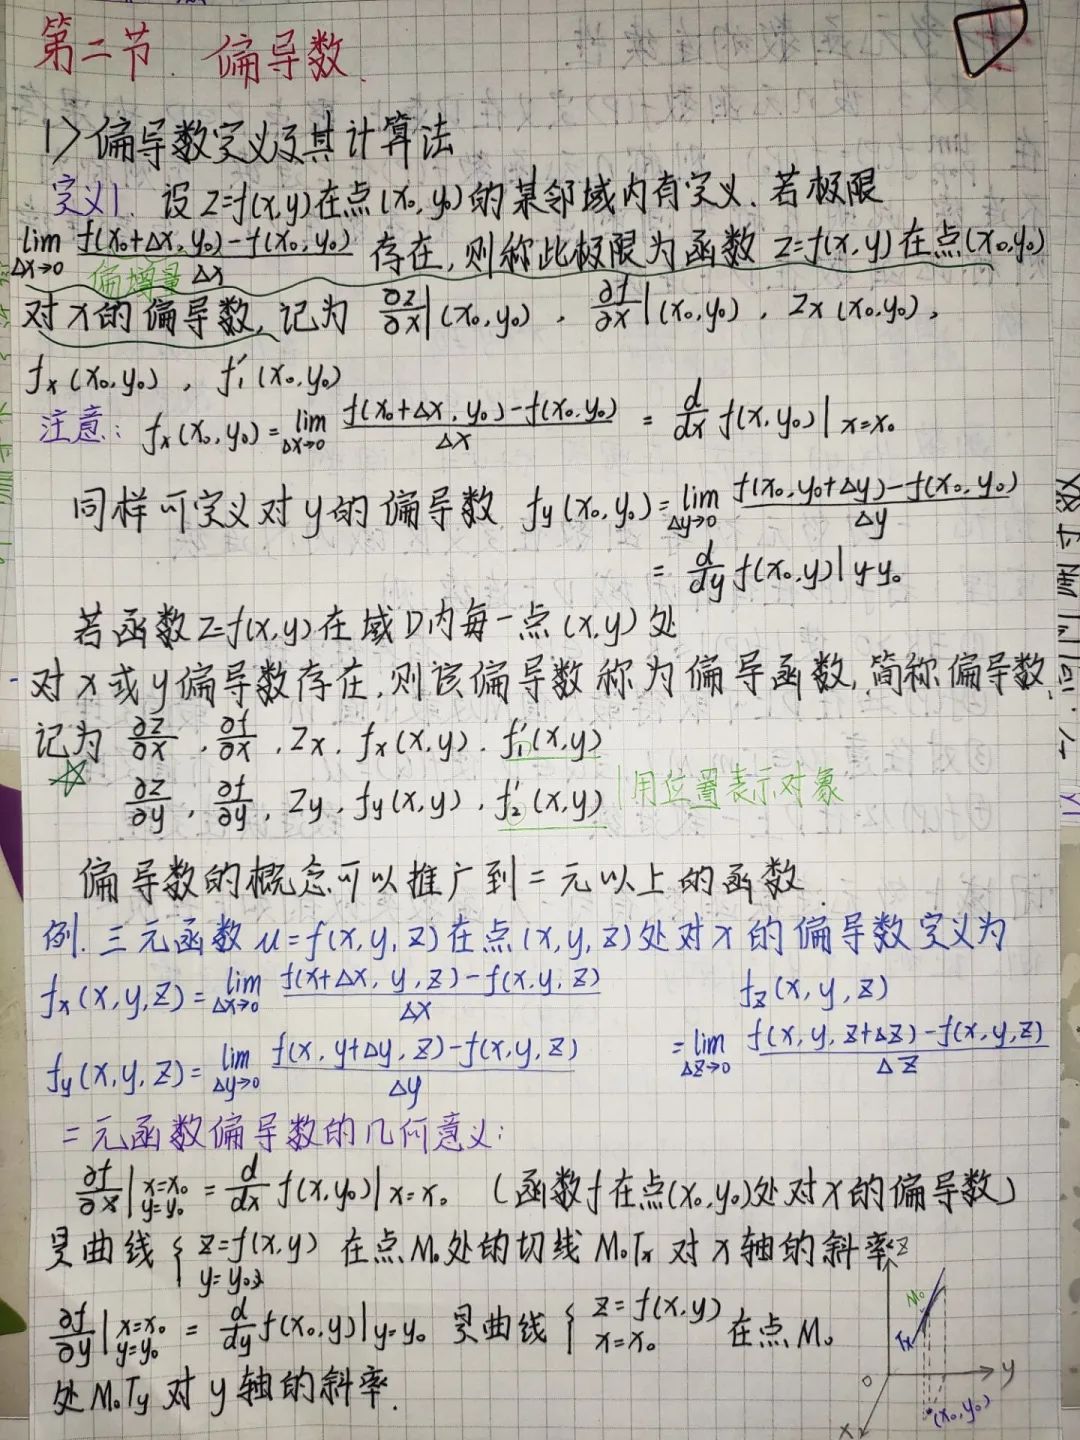 第二节. 偏导数.
1> 偏导数定义及其计算法
定义1. 设 z=f(x,y)在点(x₀,y₀)的某邻域内有定义. 若极限
lim Δx→0 (f(x₀+Δx,y₀)-f(x₀,y₀))/Δx 存在,则称此极限为函数 z=f(x,y)在点(x₀,y₀)
偏增量
对x的偏导数,记为 ∂z/∂x|(x₀,y₀), ∂f/∂x|(x₀,y₀), zx(x₀,y₀),
fx(x₀,y₀), f₁'(x₀,y₀)
注意: fx(x₀,y₀)=lim Δx→0 (f(x₀+Δx,y₀)-f(x₀,y₀))/Δx = d/dx f(x,y₀)|x=x₀
同样可定义对y的偏导数 fy(x₀,y₀)=lim Δy→0 (f(x₀,y₀+Δy)-f(x₀,y₀))/Δy
= d/dy f(x₀,y)|y=y₀
若函数z=f(x,y)在域D内每一点(x,y)处
对x或y偏导数存在,则该偏导数称为偏导函数,简称偏导数
记为 ∂z/∂x, ∂f/∂x, zx, fx(x,y), f₁'(x,y)
☆ ∂z/∂y, ∂f/∂y, zy, fy(x,y), f₂'(x,y) 用位置表示对象
偏导数的概念可以推广到二元以上的函数.
例. 三元函数 u=f(x,y,z)在点(x,y,z)处对x的偏导数定义为
fx(x,y,z)=lim Δx→0 (f(x+Δx,y,z)-f(x,y,z))/Δx fz(x,y,z)
fy(x,y,z)=lim Δy→0 (f(x,y+Δy,z)-f(x,y,z))/Δy =lim Δz→0 (f(x,y,z+Δz)-f(x,y,z))/Δz
二元函数偏导数的几何意义:
∂f/∂x|x=x₀ y=y₀ = d/dx f(x,y₀)|x=x₀ (函数f在点(x₀,y₀)处对x的偏导数)
是曲线{z=f(x,y) y=y₀ 在点M₀处的切线M₀Tx 对x轴的斜率
∂f/∂y|x=x₀ y=y₀ = d/dy f(x₀,y)|y=y₀ 是曲线{z=f(x,y) x=x₀ 在点M₀
处M₀Ty 对y轴的斜率.
z
M₀
Tx
o
y
(x₀,y₀)
x